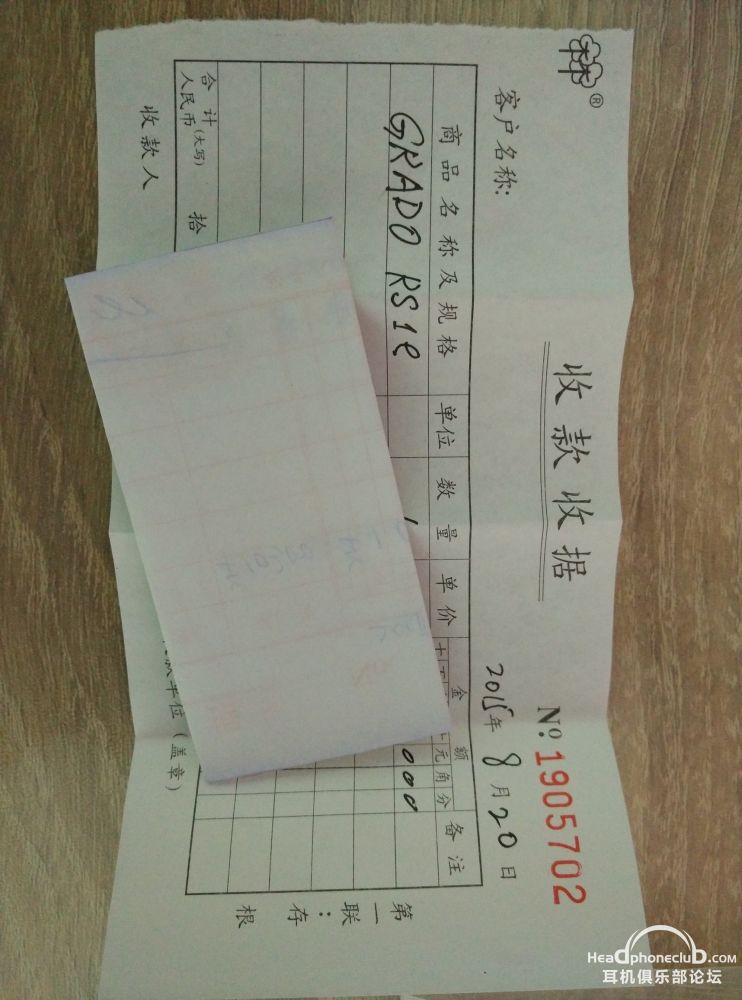 ®
收款收据
№:1905702
客户名称:
2015年8月20日
商品名称及规格 单位 数量 单价 金额 备注
元角分
GRADO RS1e 1 000
合计
人民币(大写) 拾
收款人
单位(盖章)
第一联:存根
Headphoneclub.com
耳机俱乐部论坛